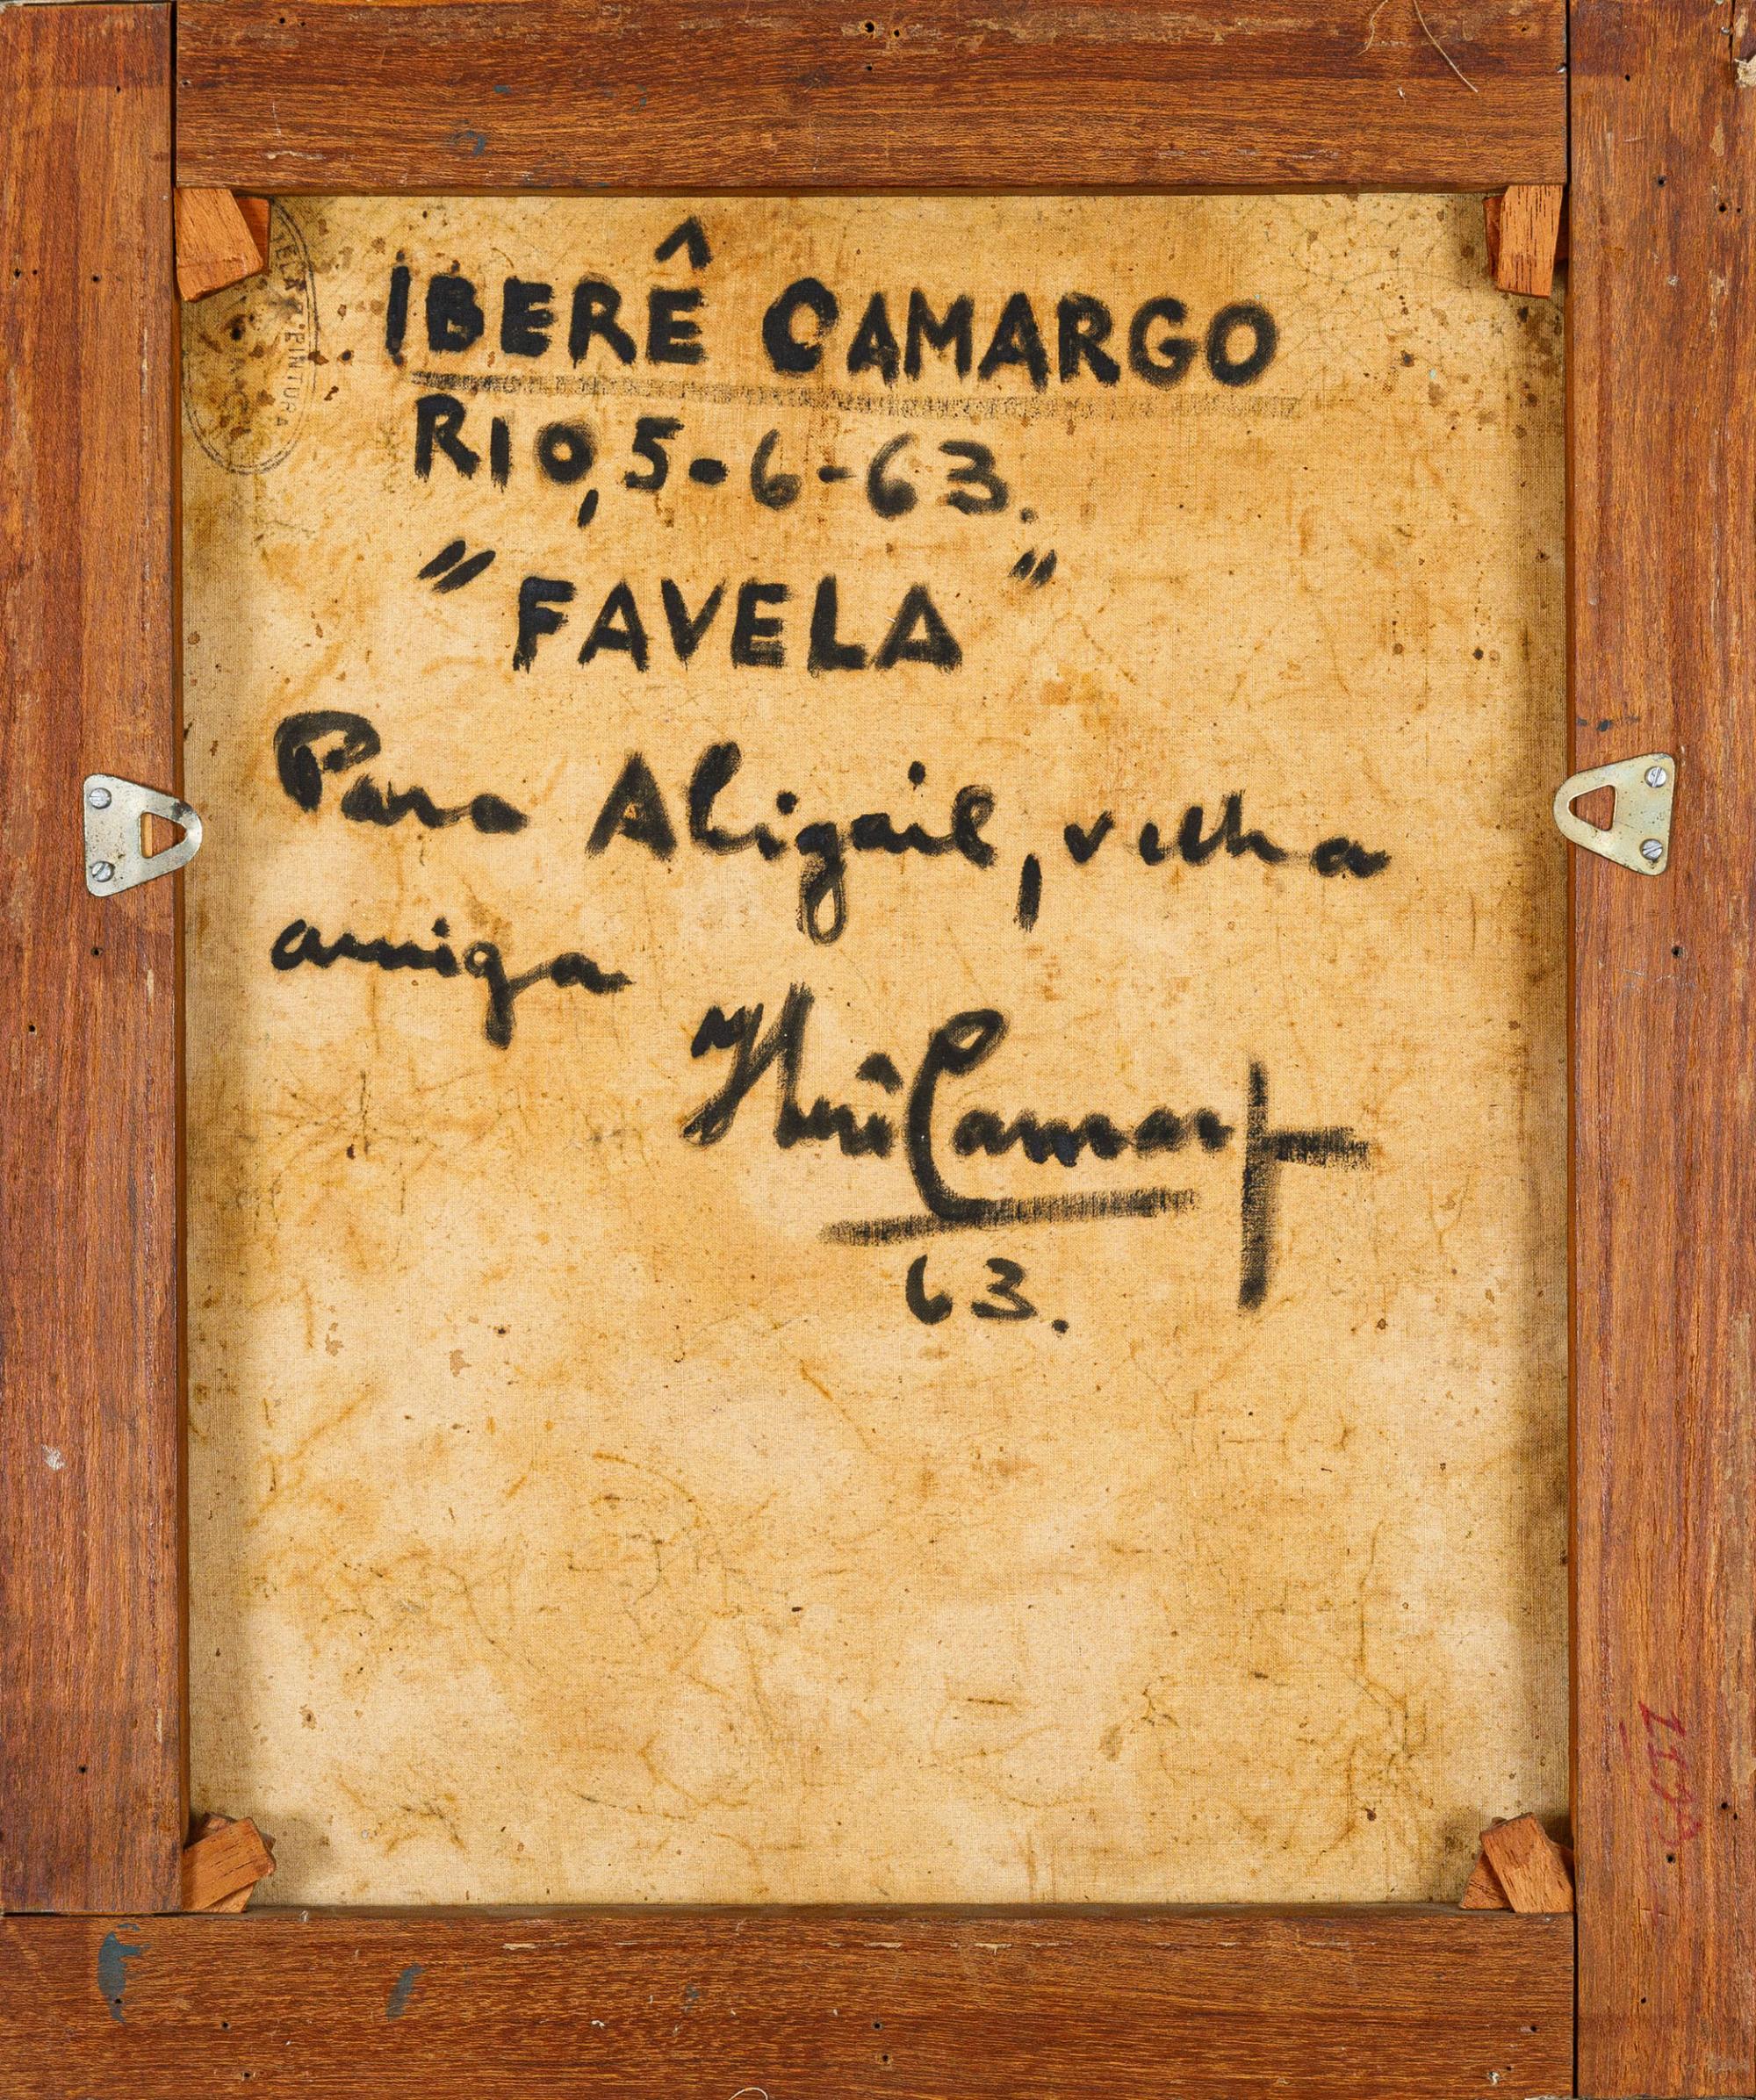 IBERÊ CAMARGO
RIO, 5-6-63.
"FAVELA"
Para Abigail, velha
amiga
Iberê Camargo
63.
TELA PINTURA